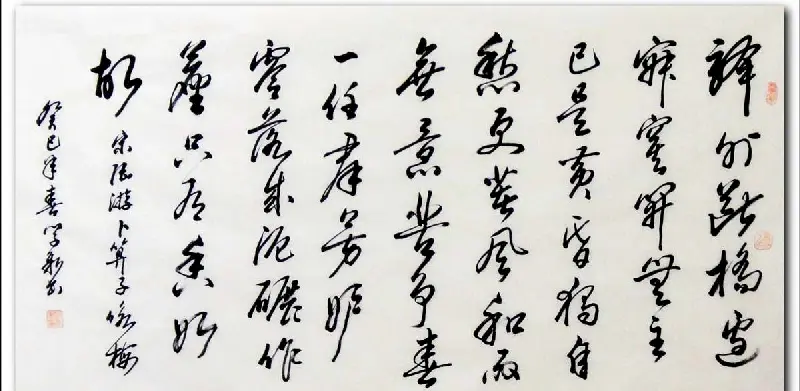 驛外斷橋邊
寂寞開無主
已是黄昏獨自
愁更著風和雨
無意苦争春
一任羣芳妒
零落成泥碾作
塵只有香如
故 宋陸游卜算子咏梅
癸巳年春